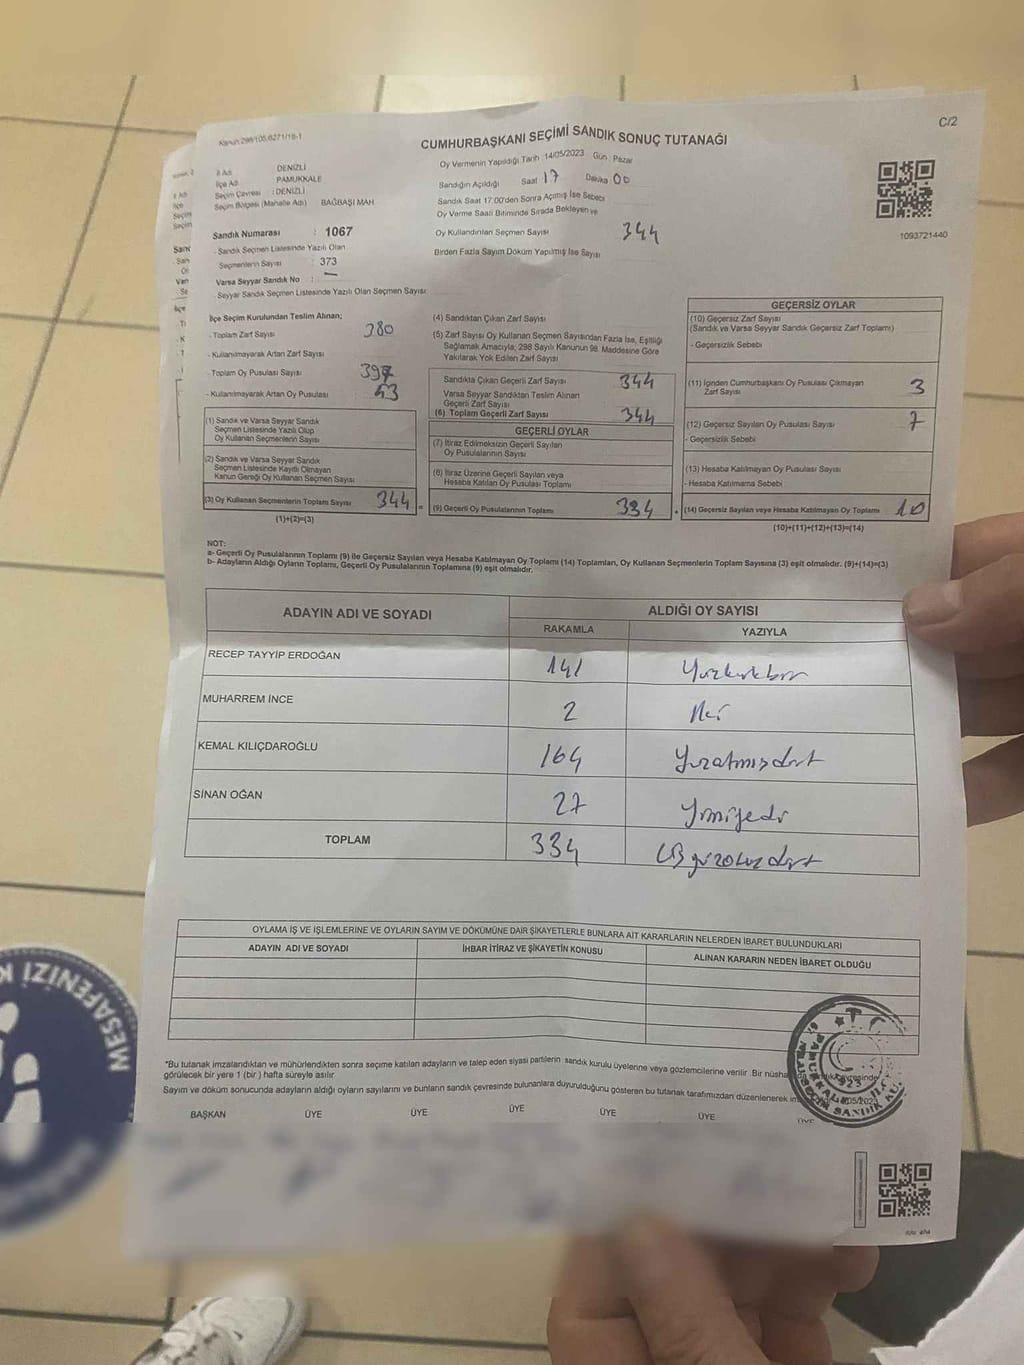 Kanun:298/105,6271/18-1
CUMHURBAŞKANI SEÇİMİ SANDIK SONUÇ TUTANAĞI
C/2
İl Adı DENİZLİ
İlçe Adı PAMUKKALE
Seçim Çevresi : DENİZLİ
Seçim Bölgesi (Mahalle Adı) BAĞBAŞI MAH.
Oy Vermenin Yapıldığı Tarih 14/05/2023 Gün Pazar
Sandığın Açıldığı Saat 17 Dakika 00
Sandık Saat 17:00'den Sonra Açılmış İse Sebebi
Oy Verme Saati Bitiminde Sırada Bekleyen ve
Oy Kullandırılan Seçmen Sayısı 344
Birden Fazla Sayım Döküm Yapılmış İse Sayısı
1093721440
Sandık Numarası : 1067
- Sandık Seçmen Listesinde Yazılı Olan
Seçmenlerin Sayısı : 373
Varsa Seyyar Sandık No : —
- Seyyar Sandık Seçmen Listesinde Yazılı Olan Seçmen Sayısı:
İlçe Seçim Kurulundan Teslim Alınan;
- Toplam Zarf Sayısı 380
- Kullanılmayarak Artan Zarf Sayısı
- Toplam Oy Pusulası Sayısı 397
- Kullanılmayarak Artan Oy Pusulası : 53
(1) Sandık ve Varsa Seyyar Sandık
Seçmen Listesinde Yazılı Olup
Oy Kullanan Seçmenlerin Sayısı
(2) Sandık ve Varsa Seyyar Sandık
Seçmen Listesinde Kayıtlı Olmayan
Kanun Gereği Oy Kullanan Seçmen Sayısı
(3) Oy Kullanan Seçmenlerin Toplam Sayısı 344
(1)+(2)=(3)
(4) Sandıktan Çıkan Zarf Sayısı
(5) Zarf Sayısı Oy Kullanan Seçmen Sayısından Fazla İse, Eşitliği
Sağlamak Amacıyla; 298 Sayılı Kanunun 98. Maddesine Göre
Yakılarak Yok Edilen Zarf Sayısı
Sandıkta Çıkan Geçerli Zarf Sayısı 344
Varsa Seyyar Sandıktan Teslim Alınan
Geçerli Zarf Sayısı
(6) Toplam Geçerli Zarf Sayısı 344
GEÇERLİ OYLAR
(7) İtiraz Edilmeksizin Geçerli Sayılan
Oy Pusulalarının Sayısı
(8) İtiraz Üzerine Geçerli Sayılan veya
Hesaba Katılan Oy Pusulası Toplamı
(9) Geçerli Oy Pusulalarının Toplamı 334
GEÇERSİZ OYLAR
(10) Geçersiz Zarf Sayısı
(Sandık ve Varsa Seyyar Sandık Geçersiz Zarf Toplamı)
- Geçersizlik Sebebi
(11) İçinden Cumhurbaşkanı Oy Pusulası Çıkmayan
Zarf Sayısı 3
(12) Geçersiz Sayılan Oy Pusulası Sayısı 7
- Geçersizlik Sebebi
(13) Hesaba Katılmayan Oy Pusulası Sayısı
- Hesaba Katılmama Sebebi
(14) Geçersiz Sayılan veya Hesaba Katılmayan Oy Toplamı 10
(10)+(11)+(12)+(13)=(14)
NOT:
a- Geçerli Oy Pusulalarının Toplamı (9) ile Geçersiz Sayılan veya Hesaba Katılmayan Oy Toplamı (14) Toplamları, Oy Kullanan Seçmenlerin Toplam Sayısına (3) eşit olmalıdır. (9)+(14)=(3)
b- Adayların Aldığı Oyların Toplamı, Geçerli Oy Pusulalarının Toplamına (9) eşit olmalıdır.
ADAYIN ADI VE SOYADI ALDIĞI OY SAYISI
RAKAMLA YAZIYLA
RECEP TAYYİP ERDOĞAN 141 Yüzkırkbir
MUHARREM İNCE 2 İki
KEMAL KILIÇDAROĞLU 164 Yüzatmışdört
SİNAN OĞAN 27 Yirmiyedi
TOPLAM 334 Üçyüzotuzdört
OYLAMA İŞ VE İŞLEMLERİNE VE OYLARIN SAYIM VE DÖKÜMÜNE DAİR ŞİKAYETLERLE BUNLARA AİT KARARLARIN NELERDEN İBARET BULUNDUKLARI
ADAYIN ADI VE SOYADI İHBAR İTİRAZ VE ŞİKAYETİN KONUSU ALINAN KARARIN NEDEN İBARET OLDUĞU
*Bu tutanak imzalandıktan ve mühürlendikten sonra seçime katılan adayların ve talep eden siyasi partilerin sandık kurulu üyelerine veya gözlemcilerine verilir. Bir nüsha
görülecek bir yere 1 (bir ) hafta süreyle asılır.
Sayım ve döküm sonucunda adayların aldığı oyların sayılarını ve bunların sandık çevresinde bulunanlara duyurulduğunu gösteren bu tutanak tarafımızdan düzenlenerek
BAŞKAN ÜYE ÜYE ÜYE ÜYE ÜYE ÜYE
MESAFENİZİ